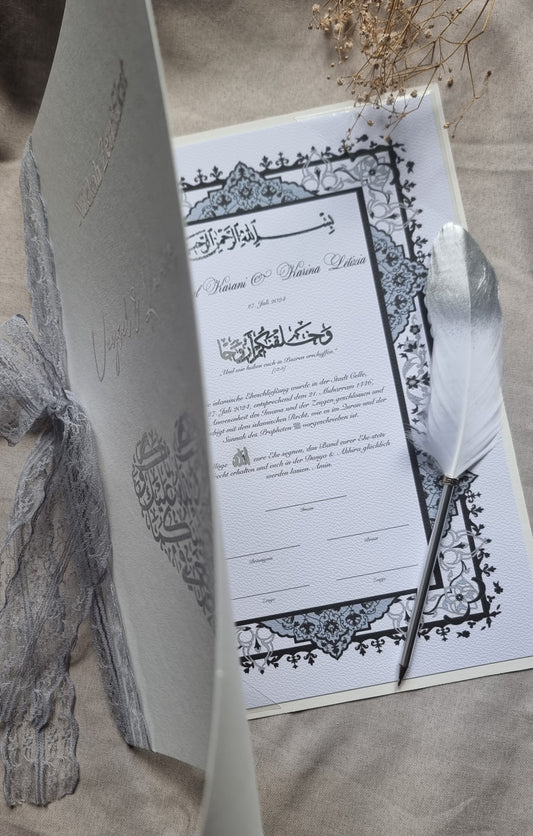 بسم الله الرحمن الرحيم
Karani & Karina Letizia
27. Juli 2024
وَخَلَقْنَاكُمْ أَزْوَاجًا
"Und wir haben euch in Paaren erschaffen."
islamische Eheschließung wurde in der Stadt Celle,
27. Juli 2024, entsprechend dem 21. Muharram 1446,
Anwesenheit des Imams und der Zeugen geschlossen und
mit dem islamischen Recht, wie es im Quran und der
Sunnah des Propheten ﷺ vorgeschrieben ist.
الله eure Ehe segnen, das Band eurer Ehe stets
recht erhalten und euch in der Dunya & Akhira glücklich
werden lassen. Amin.
Imam
Bräutigam
Braut
Zeuge
Zeuge